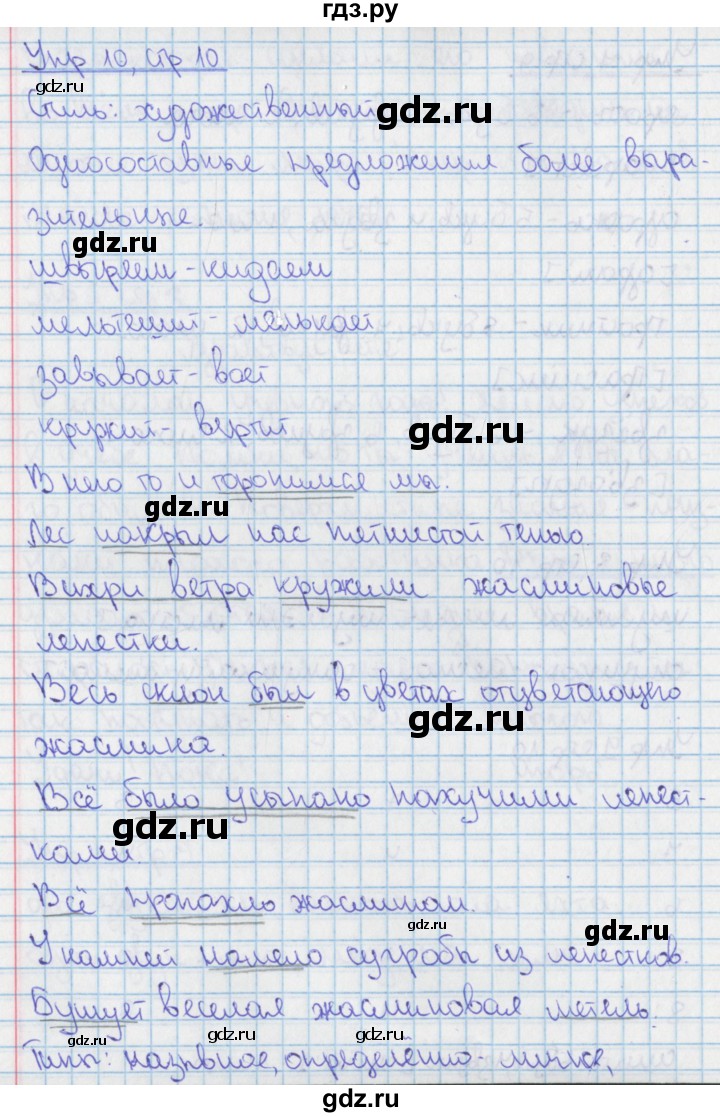 гдз.ру
Упр 10, стр 10
gdz.ru
Стиль: художественный
gdz.ru
Односоставные предложения более выра-
зительные.
gdz.ru
швыряем - кидаем
мельтешит - мелькает
завывает - воет
кружит - вертит
gdz.ru
В него то и торопимся мы.
gdz.ru
Лес накрыл нас пятнистой тенью.
gdz.ru
Вихри ветра кружили жасминовые
лепестки.
Весь склон был в цветах отцветающего
gdz.ru
жасмина.
Всё было усыпано пахучими лепест-
gdz.ru
ками.
Всё пропахло жасмином.
gdz.ru
У камней намело сугробы из лепестков.
Бушует веселая жасминовая метель.
gdz.ru
gdz.ru
Типы: назывное, определённо-личное,
gdz.ru
gdz.ru
гдз.ру